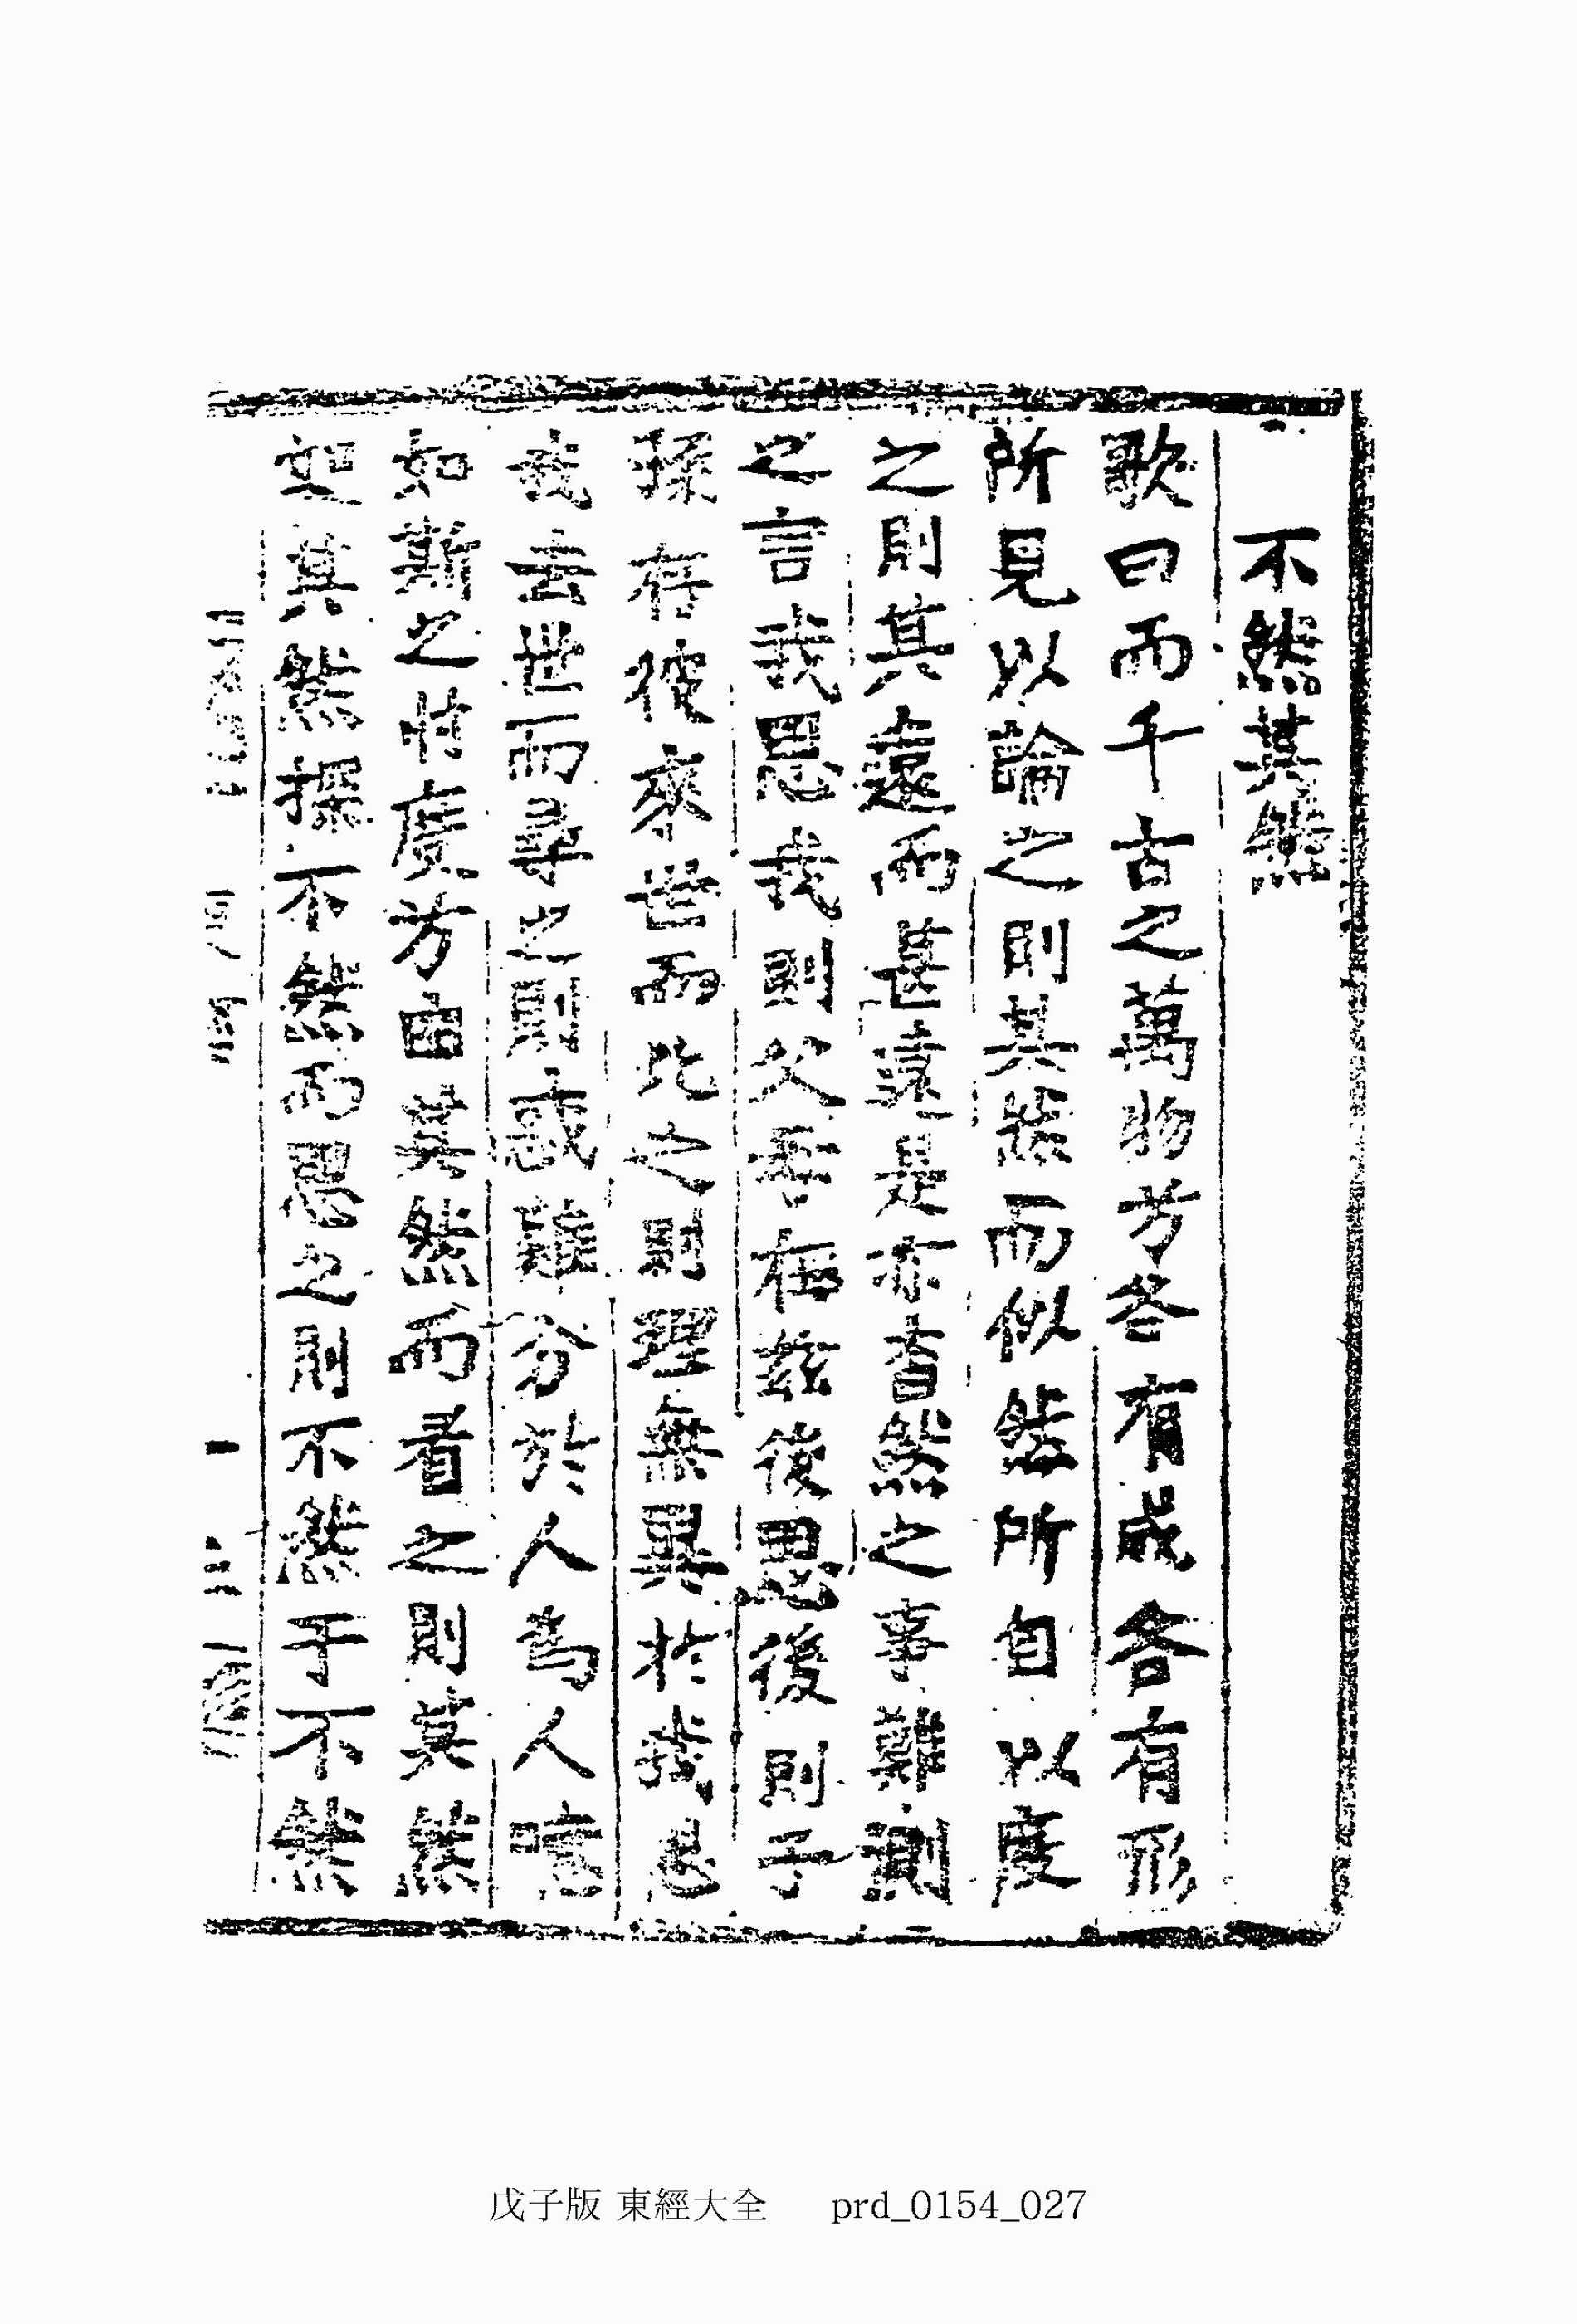 不然其然
歌曰而千古之萬物兮各有成各有形
所見以論之則其然而似然所自以度
之則其遠而甚遠是亦杳然之事難測
之言我思我則父母在玆後思後則子
孫存彼來世而比之則理無異於我思
我去世而尋之則惑難分於人爲人噫
如斯之忖度兮由其然而看之則其然
如其然探不然而思之則不然于不然
戊子版 東經大全 prd_0154_027